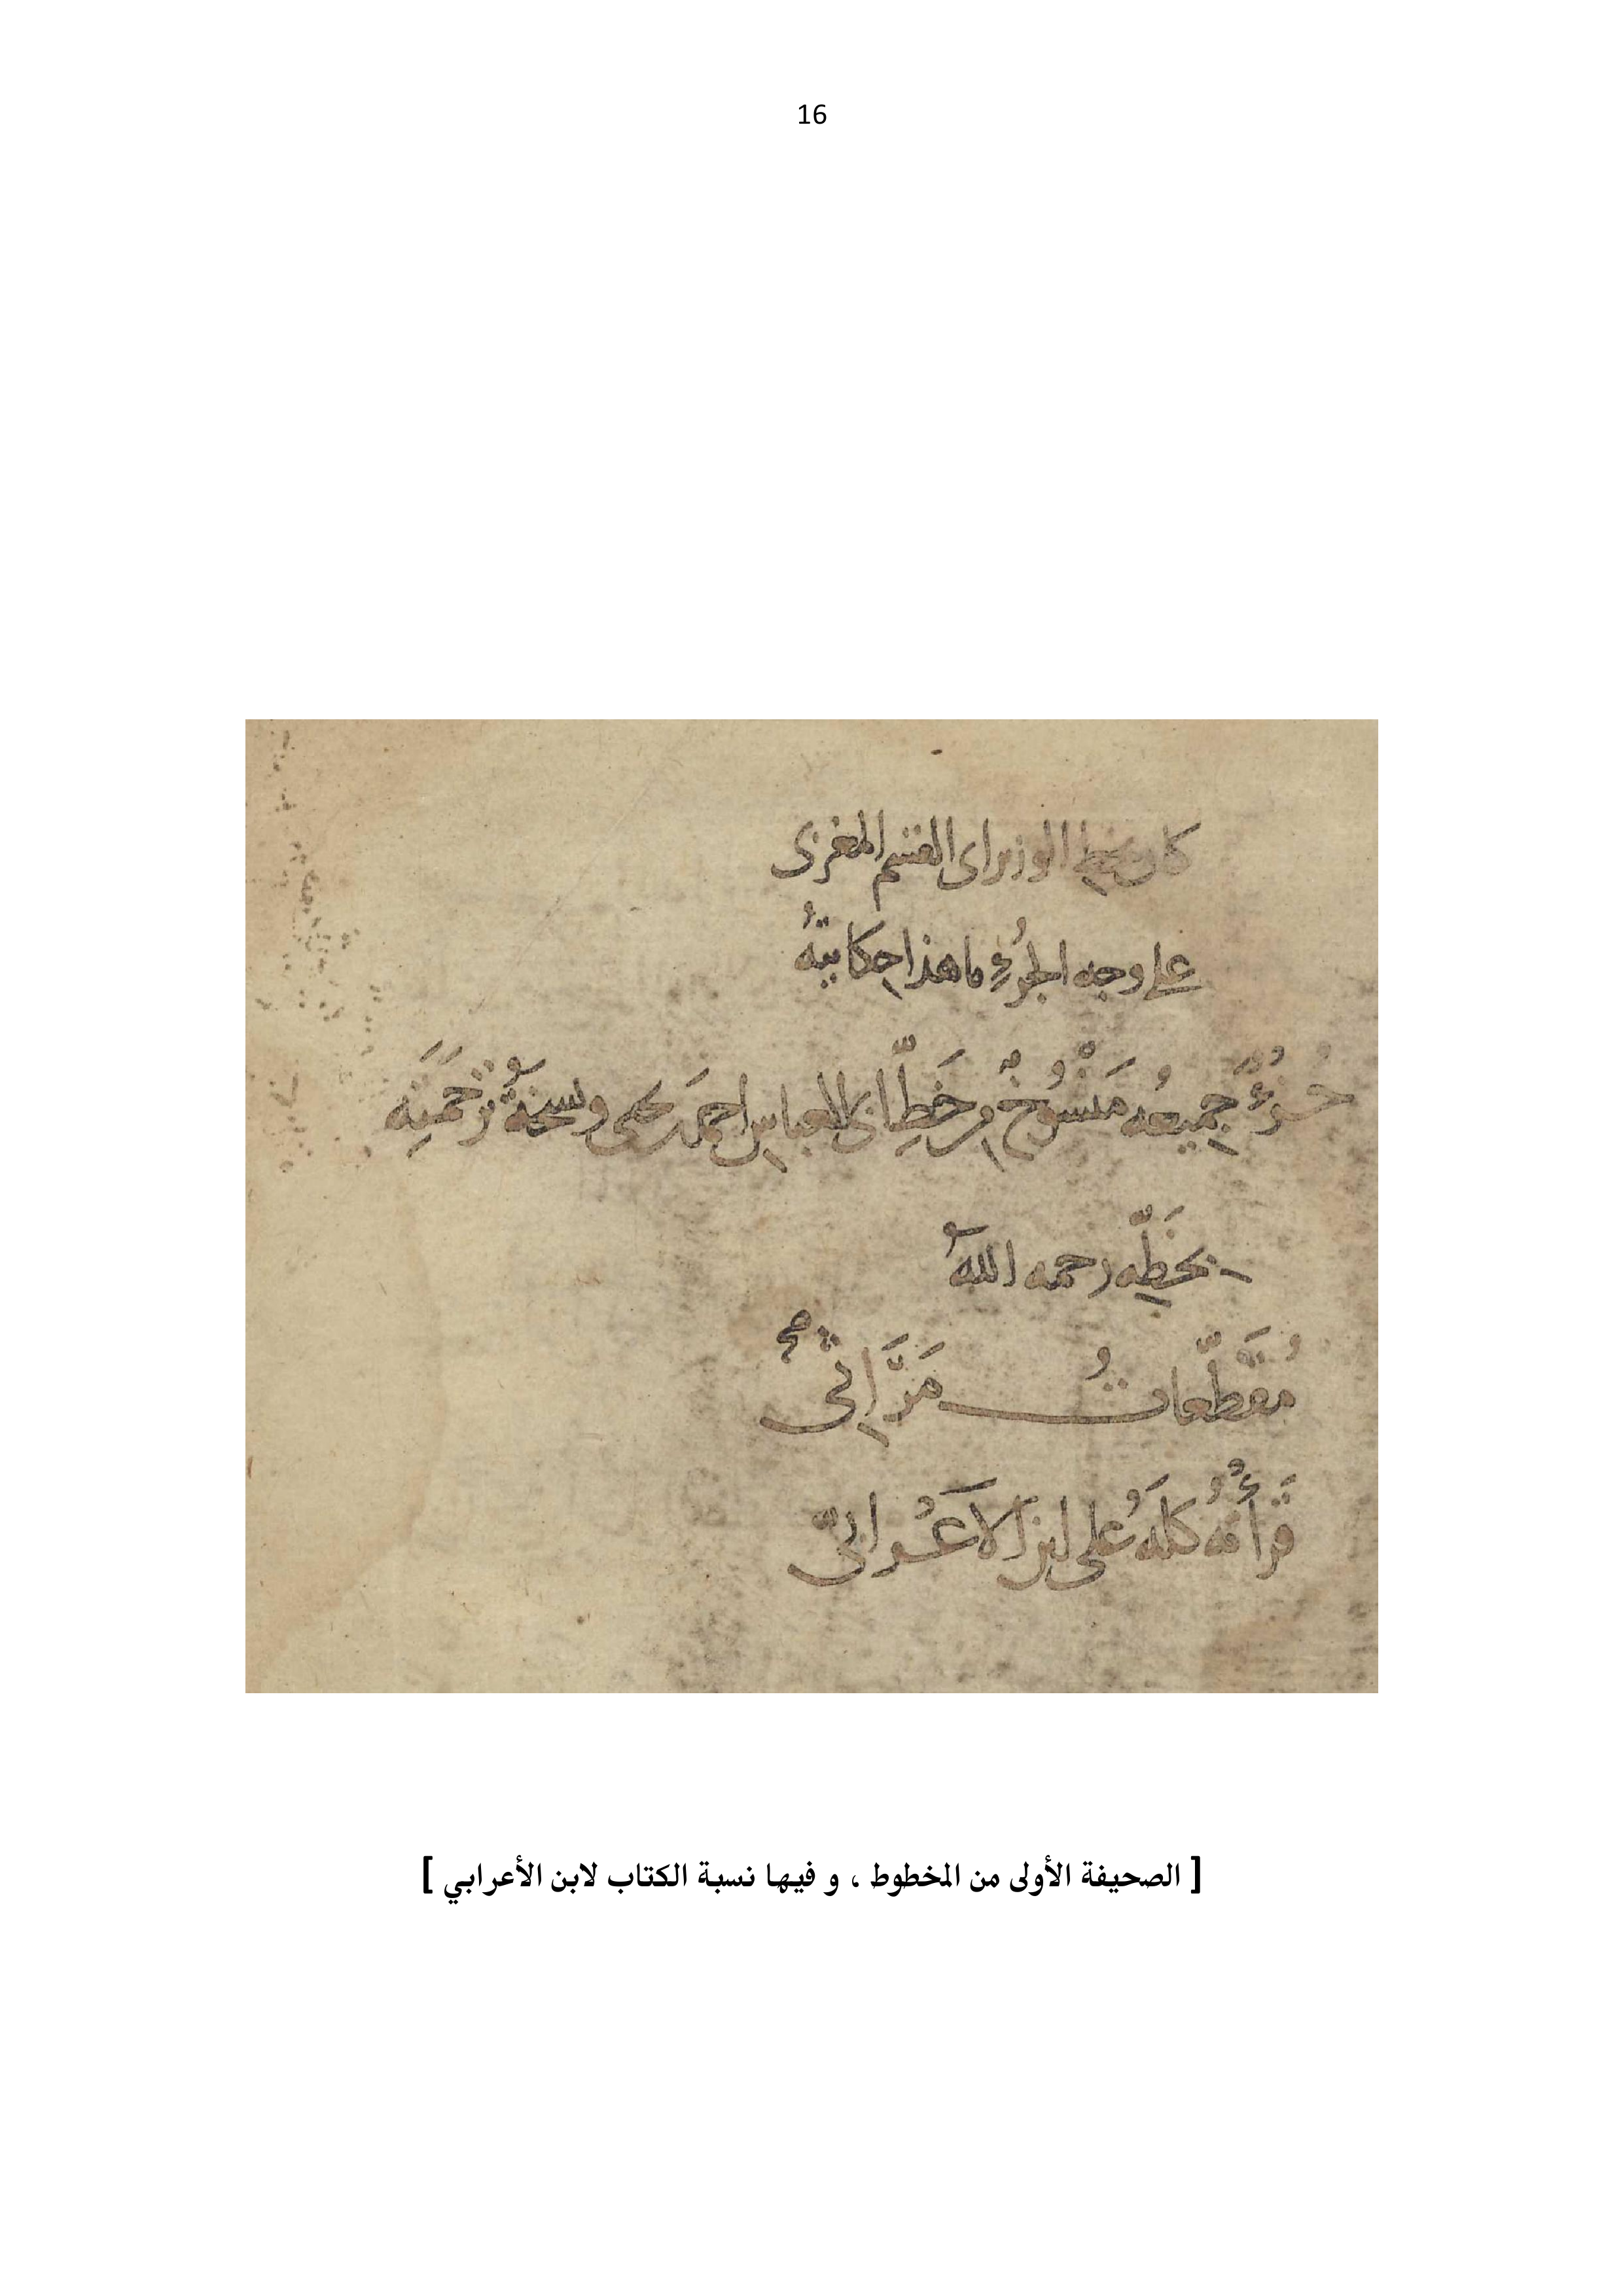 16
كان بخط الوزير ابى القسم المغربى
على وجه الجُزءِ ما هذا حكايتهُ
جُزءٌ جَمِيعُه مَنْسُوخٌ مِن خَطِّ ابى العباسِ احمدَ بن يحيى ونسخةُ تَرْجَمَتِه
بخَطِّه رحمه اللهُ
مُقَطَّعاتُ مَرَاثٍ صح
قَرَأْتُهُ كلَّهُ على ابن الاَعْرابىّ
[ الصحيفة الأولى من المخطوط ، و فيها نسبة الكتاب لابن الأعرابي ]